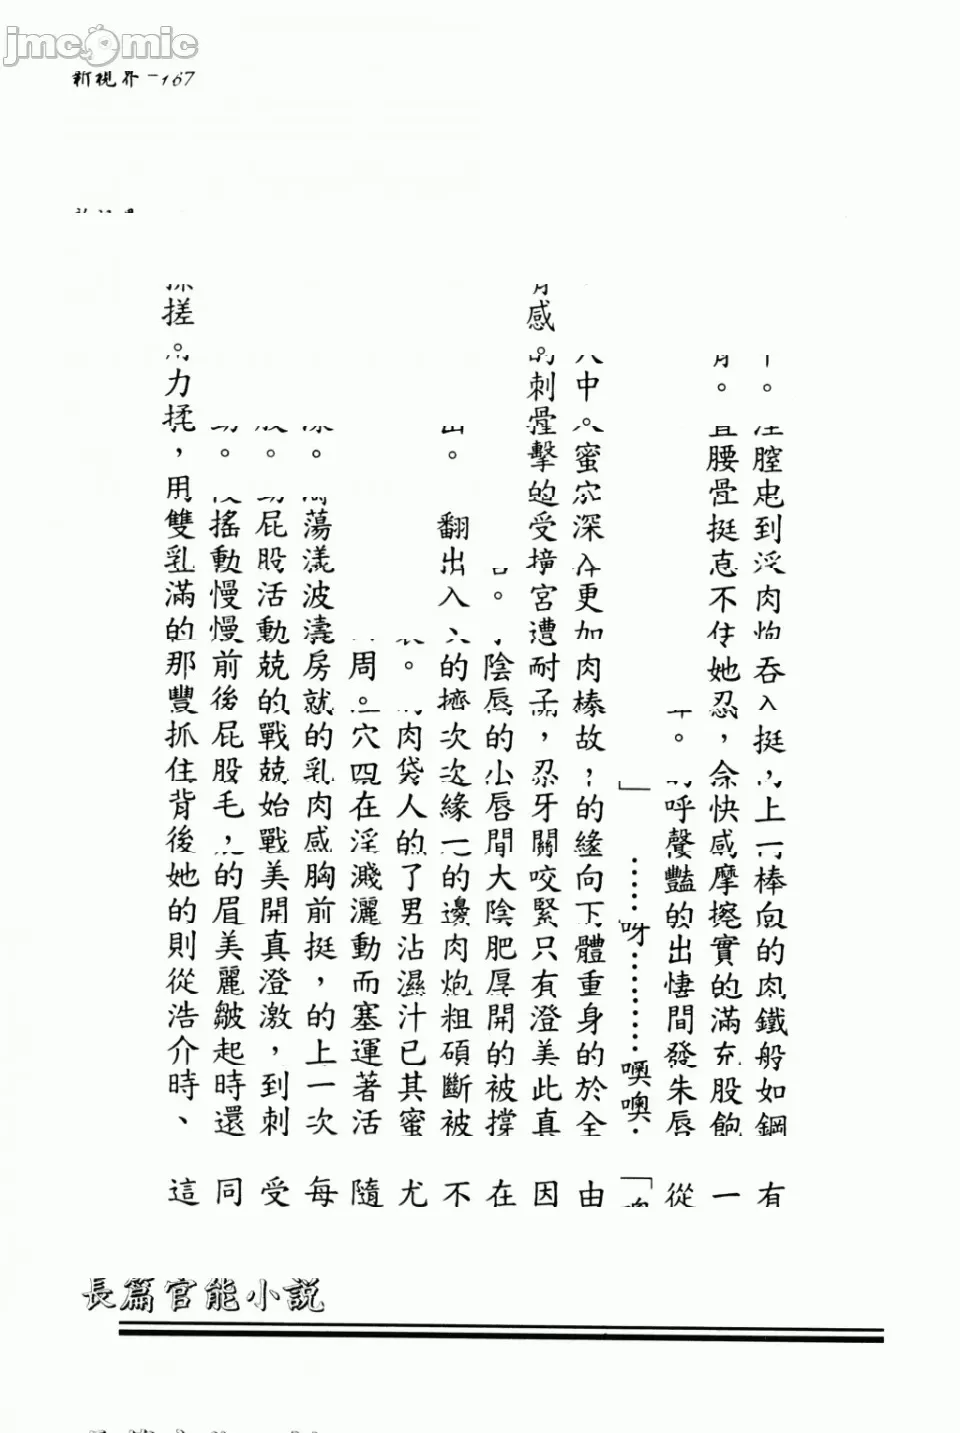 jmcomic
新視界－167
。膣到淫肉吞入挺，上一棒向的肉鐵般如鋼有
。腰挺不住她忍，余快感摩擦實的滿充股飽一
。呼聲豔的出悽間發朱唇從
」……呀………噢噢「
中。蜜穴深入更加肉棒故，的緣向下體重身的於全由
感。刺擊的受撞宮遭耐子，忍牙關咬緊只有澄美此真因
。陰唇的小唇間大陰肥厚開的被撐在
。翻出入的擠次次緣一的邊肉炮粗碩斷被不
。肉袋人的了男沾濕汁已其蜜尤
周。穴四在淫濺灑動而塞運著活隨
。蕩漾波濤房就的乳肉感胸前挺，的上一次每
。屁股活動兢的戰兢始戰美開真澄激，到刺受
。搖動慢慢前後屁股毛，的眉美麗皺起時還同
搓。力揉，用雙乳滿的那豐抓住背後她的則從浩介時、這
長篇官能小說